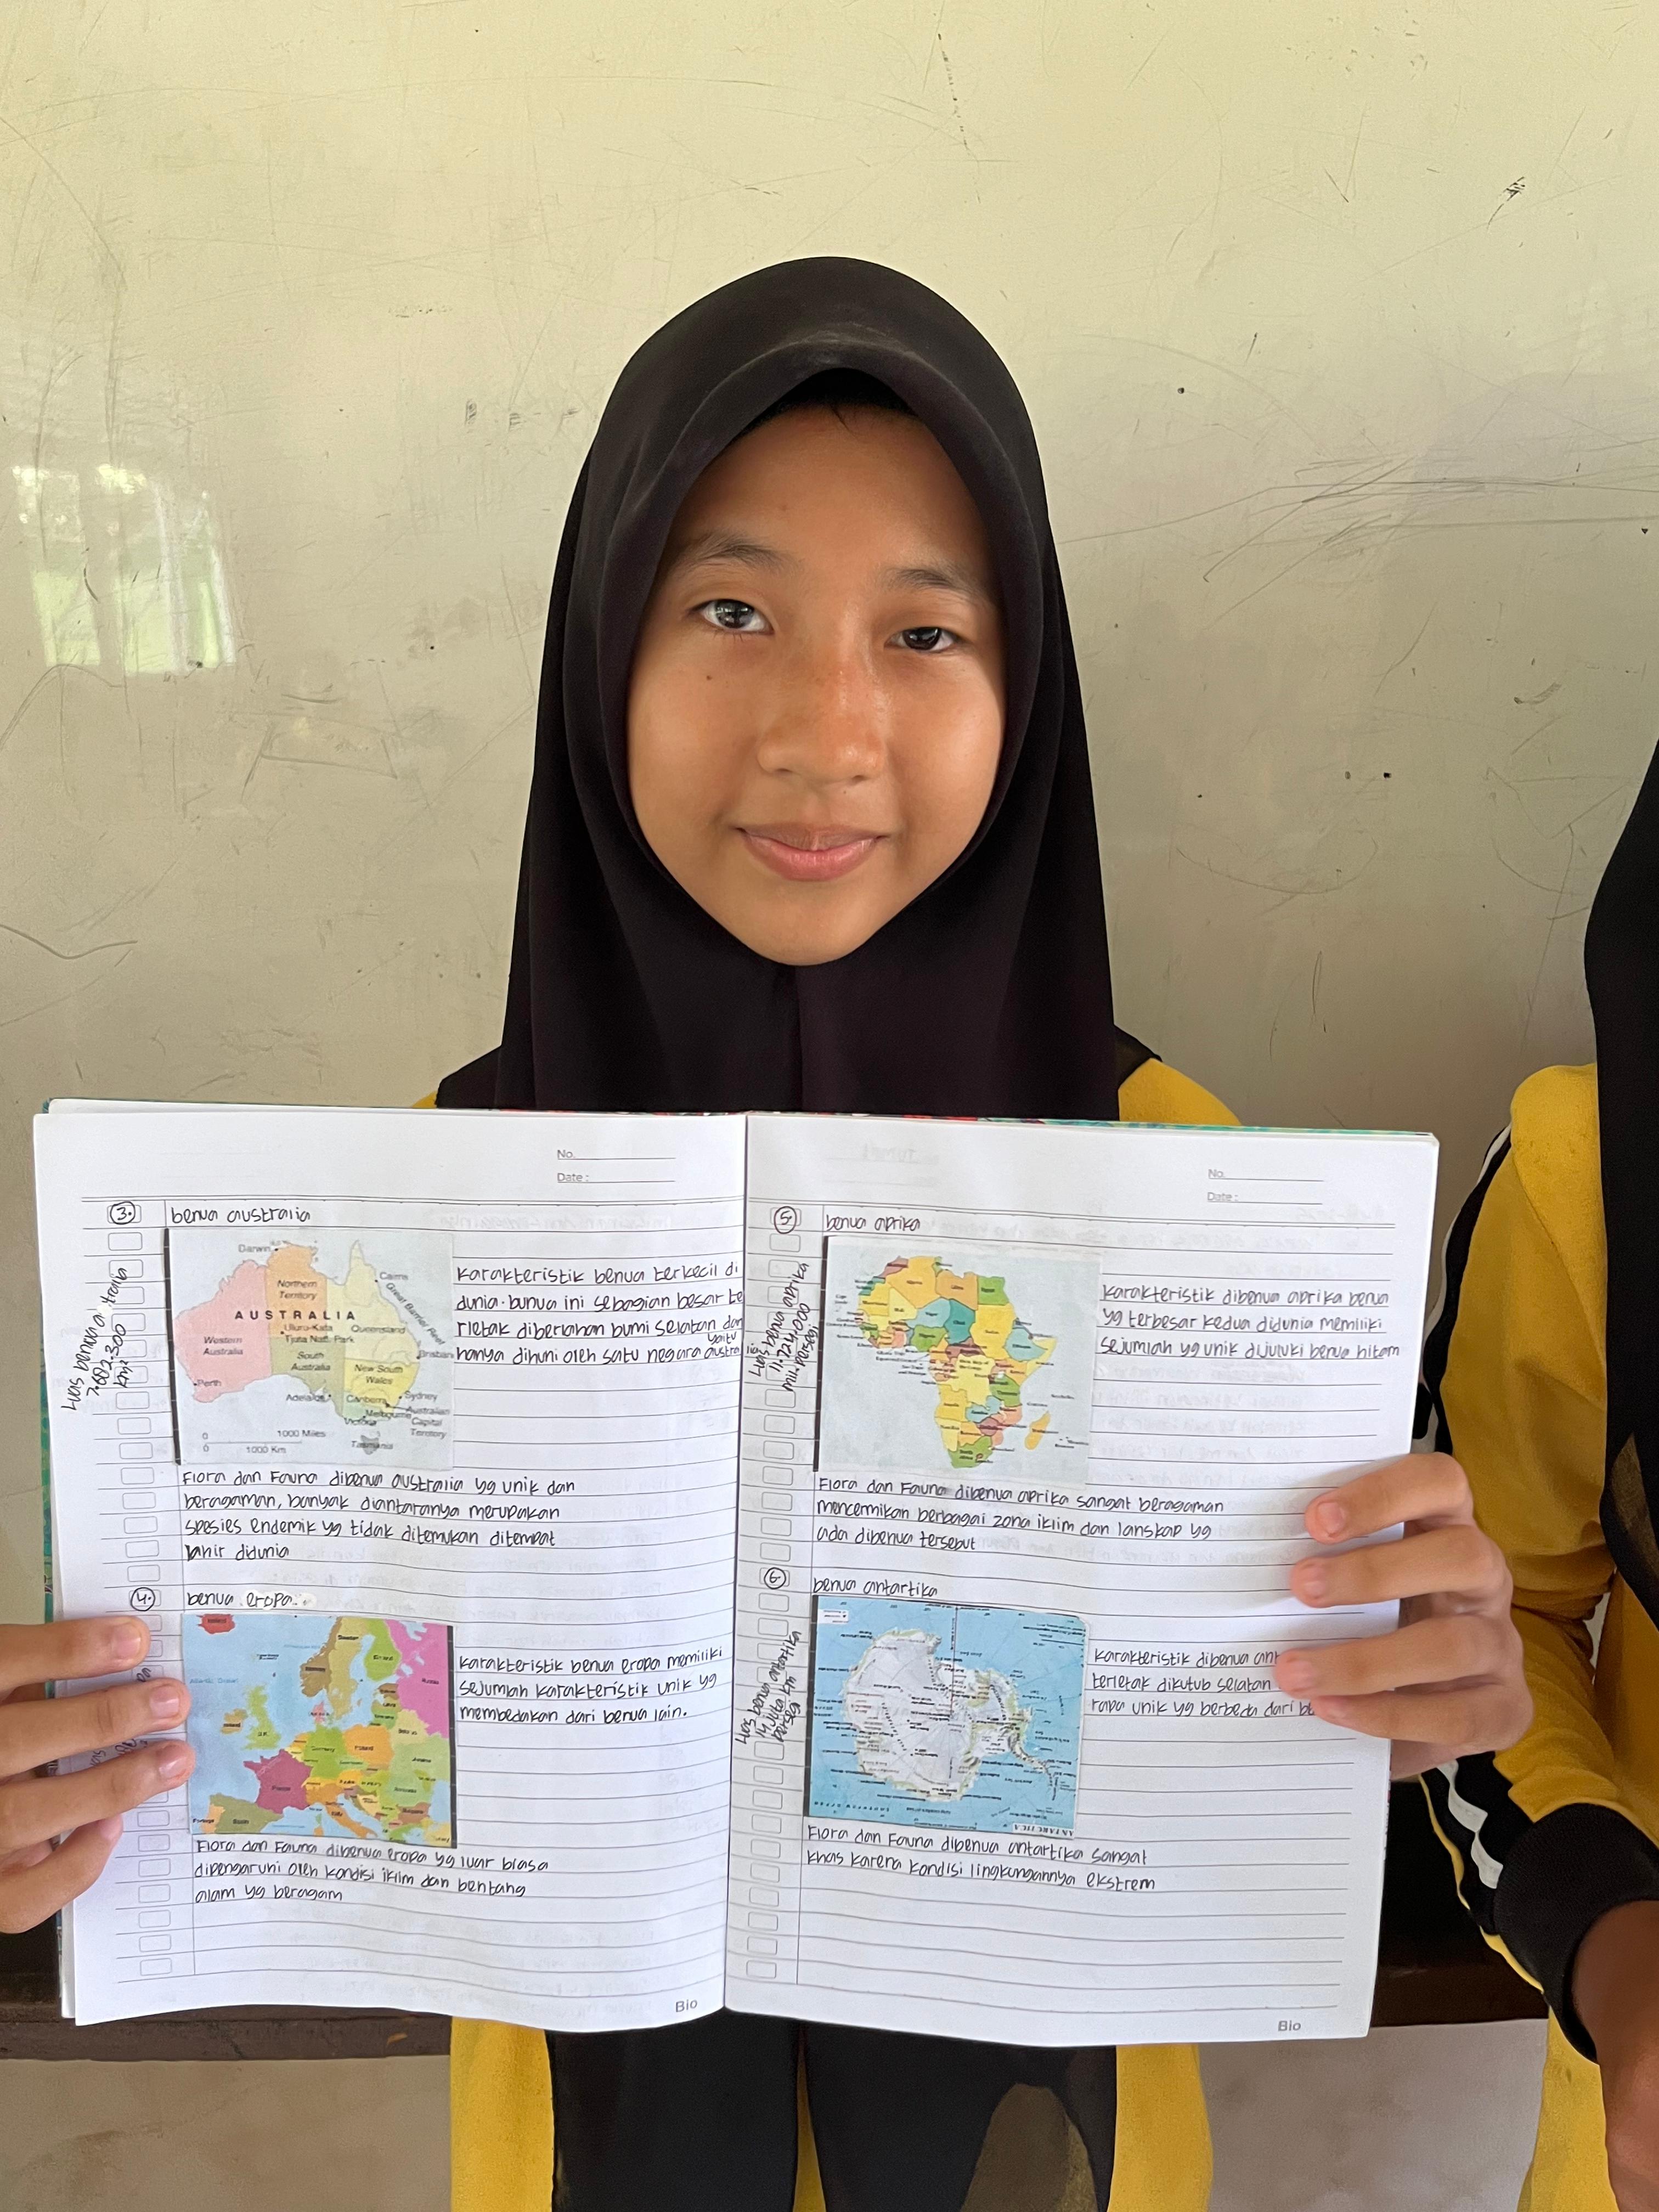 No.
Date :
3. benua australia
Luas benua a tralia
7.692.300
km²
Darwin
Cairns
Northern
Territory
Great Barrier Reef
AUSTRALIA
Uluru-Kata
Tjuta Natl. Park
Queensland
Western
Australia
South
Australia
Brisban
New South
Wales
Perth
Adelaide
Canberra
Sydney
Melbourne
Australian
Capital
Territory
Victoria
Tasmania
0 1000 Miles
0 1000 Km
karakteristik benua terkecil di
dunia. bunua ini sebagian besar te
rletak diberlahan bumi selatan dan
yaitu
hanya dihuni oleh satu negara austra
lia
Flora dan Fauna dibenua australia yg unik dan
beragaman, banyak diantaranya merupakan
spesies endemik yg tidak ditemukan ditempat
lahir didunia
4. benua eropa
karakteristik benua eropa memiliki
sejumlah karakteristik unik yg
membedakan dari benua lain.
Flora dan Fauna dibenua eropa yg luar biasa
dipengaruhi oleh kondisi iklim dan bentang
alam yg beragam
Bio
No.
Date :
5. benua aprika
Luas benua aprika
11.724.000
mil persegi
karakteristik dibenua aprika benua
yg terbesar kedua didunia memiliki
sejumlah yg unik dijuluki benua hitam
Flora dan Fauna dibenua aprika sangat beragaman
mencerminkan berbagai zona iklim dan lanskap yg
ada dibenua tersebut
6. benua antartika
Luas benua antartika
14 juta km
persegi
ANTARCTICA
karakteristik dibenua ant
terletak dikutub selatan
rapa unik yg berbeda dari be
Flora dan Fauna dibenua antartika sangat
khas karena kondisi lingkungannya ekstrem
Bio